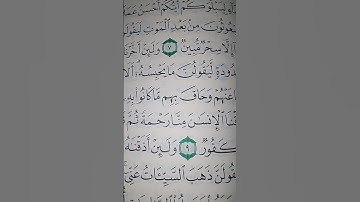 لِيَبْلُوَكُمْ أَيُّكُمْ أَحْسَنُ عَمَلًا
بْعُوثُونَ مِنۢ بَعْدِ ٱلْمَوْتِ لَيَقُولَ
إِلَّا سِحْرٌ مُّبِينٌ ٧ وَلَئِنْ أَخَّرْنَا
دُودَةٍ لَّيَقُولُنَّ مَا يَحْبِسُهُۥٓ أَلَا
عَنْهُمْ وَحَاقَ بِهِم مَّا كَانُوا۟ بِهِۦ
قْنَا ٱلْإِنسَٰنَ مِنَّا رَحْمَةً ثُمَّ
كَفُورٌ ٩ وَلَئِنْ أَذَقْنَٰهُ
قُولَنَّ ذَهَبَ ٱلسَّيِّـَٔاتُ عَنِّىٓ